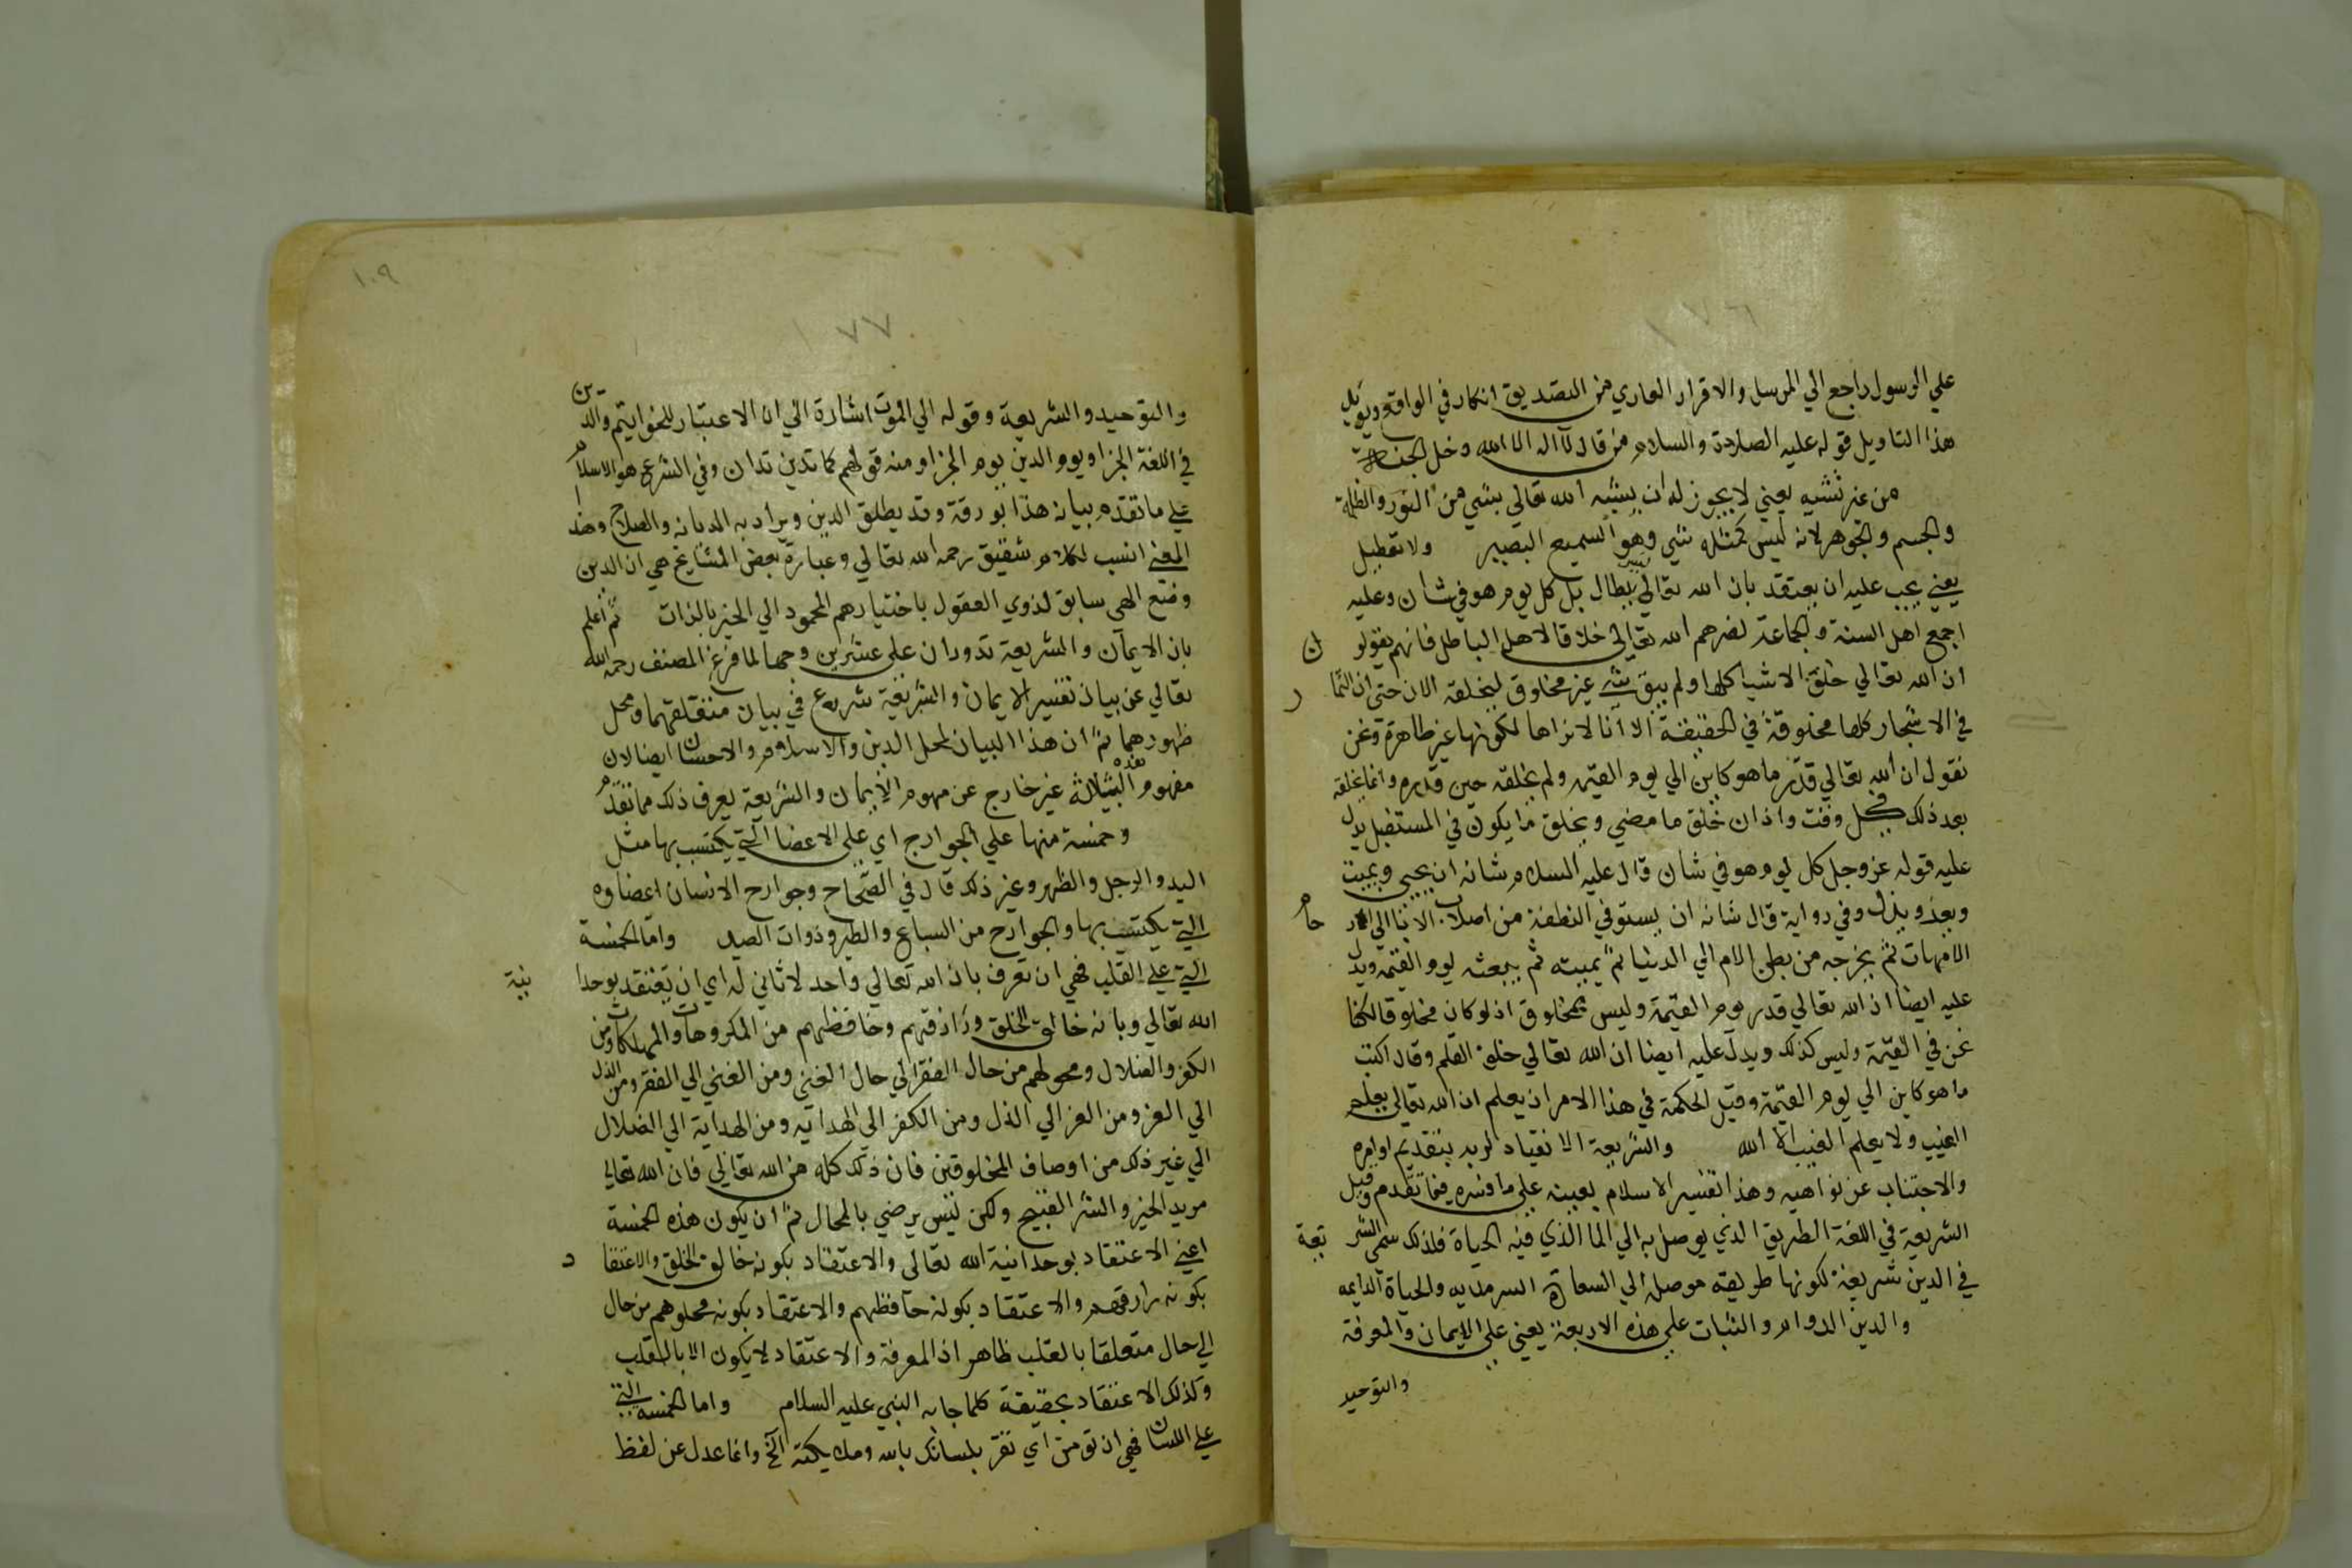 ١٧٦
علي الرسول راجع الي المرسل والاقرار العاري من التصديق انكار في الواقع ويؤيل
هذا التاويل قوله عليه الصلاة والسلام من قال لا اله الا الله دخل الجنة
من غير تشبيه يعني لا يجوز له ان يشبه الله تعالي بشي من النور والظلمة
والجسم والجوهر لانه ليس كمثله شي وهو السميع البصير ولا تعطيل
يعني يجب عليه ان يعتقد بان الله تعالي ليس ببطال بل كل يوم هو في شان وعليه
اجمع اهل السنة والجماعة نصرهم الله تعالي خلافا لاهل الباطل فانهم يقولون
ان الله تعالي خلق الاشيا كلها ولم يبق شي غير مخلوق ليخلقه الان حتي ان الثمار
في الاشجار كلها مخلوقة في الحقيقة الا انا لا نراها لكونها غير ظاهرة ونحن
نقول ان الله تعالي قدر ما هو كاين الي يوم القيمة ولم يخلقه حين قدره وانما يخلقه
بعد ذلك في كل وقت واذان خلق ما مضي ويخلق ما يكون في المستقبل يدل
عليه قوله عز وجل كل يوم هو في شان قال عليه السلام شانه ان يحيي ويميت
ويعز ويذل وفي رواية قال شانه ان يستوفي النطفة من اصلاب الابا الي ارحام
الامهات ثم يخرجه من بطن الام الي الدنيا ثم يميته ثم يبعثه يوم القيمة ويدل
عليه ايضا ان الله تعالي قدر يوم القيمة وليس بمخلوق اذ لو كان مخلوقا لكنا
نحن في القيمة وليس كذلك ويدل عليه ايضا ان الله تعالي خلق القلم وقال اكتب
ما هو كاين الي يوم القيمة وقيل الحكمة في هذا الامر ان يعلم ان الله تعالي يعلم
الغيب ولا يعلم الغيب الا الله والشريعة الانقياد لربه بتقديم اوامره
والاجتناب عن نواهيه وهذا تفسير الاسلام بعينه علي ما فسره فيما تقدم وقيل
الشريعة في اللغة الطريق الذي يوصل به الي الما الذي فيه الحياة فلذلك سمي الشريعة
في الدين شريعة لكونها طريقه موصلة الي السعادة السرمديه والحياة الدايمه
والدين الدوام والثبات علي هذه الاربعة يعني علي الايمان والمعرفة
والتوحيد
١٠٩
١٧٧
والتوحيد والشريعة وقوله الي الموت اشارة الي ان الاعتبار للخواتيم والدين
في اللغة الجزا ويوم الدين يوم الجزا ومنه قولهم كما تدين تدان وفي الشرع هو الاسلام
علي ما تقدم بيانه هذا بورقة وقد يطلق الدين ويراد به الديانه والصلاح وهذا
المعني انسب لكلام شقيق رحمه الله تعالي وعبارة بعض المشايخ هي ان الدين
وضع الهي سابق لذوي العقول باختيارهم المحمود الي الخير بالذات ثم اعلم
بان الايمان والشريعة تدوران علي عشرين وجها لما فرغ المصنف رحمه الله
تعالي عن بيان تفسير الايمان والشريعة شرع في بيان متعلقهما ومحل
ظهورهما ثم ان هذا البيان لمحل الدين والاسلام والاحسان ايضا لان
مفهوم هذه الثلاثة غير خارج عن مهوم الايمان والشريعة يعرف ذلك مما تقدم
وخمسة منها علي الجوارح اي علي الاعضا التي يكتسب بها مثل
اليد والرجل والظهر وغير ذلك قال في الصحاح وجوارح الانسان اعضاوه
التي يكتسب بها والجوارح من السباع والطير وذوات الصيد واما الخمسة
التي علي القلب فهي ان تعرف بان الله تعالي واحد لا ثاني له اي ان تعتقد بوحدانية
الله تعالي وبانه خالق الخلق ورازقهم وحافظهم من المكروهات والمهلكات ومن
الكفر والضلال ومحولهم من حال الفقر الي حال الغني ومن الغني الي الفقر ومن الذل
الي العز ومن العز الي الذل ومن الكفر الي الهدايه ومن الهداية الي الضلال
الي غير ذلك من اوصاف المخلوقين فان ذلك كله من الله تعالي فان الله تعالي
مريد الخير والشر القبيح ولكن ليس يرضي بالمحال ثم ان يكون هذه الخمسة
اعني الاعتقاد بوحدانية الله تعالي والاعتقاد بكونه خالق الخلق والاعتقاد
بكونه رازقهم والاعتقاد بكونه حافظهم والاعتقاد بكونه محلوهم من حال
الي حال متعلقا بالقلب ظاهر اذ المعرفة والاعتقاد لا يكون الا بالقلب
وكذلك الاعتقاد بحقيقة كلما جا به النبي عليه السلام واما الخمسة التي
علي اللسان فهي ان تومن اي تقر بلسانك بالله وملايكته الخ وانما عدل عن لفظ